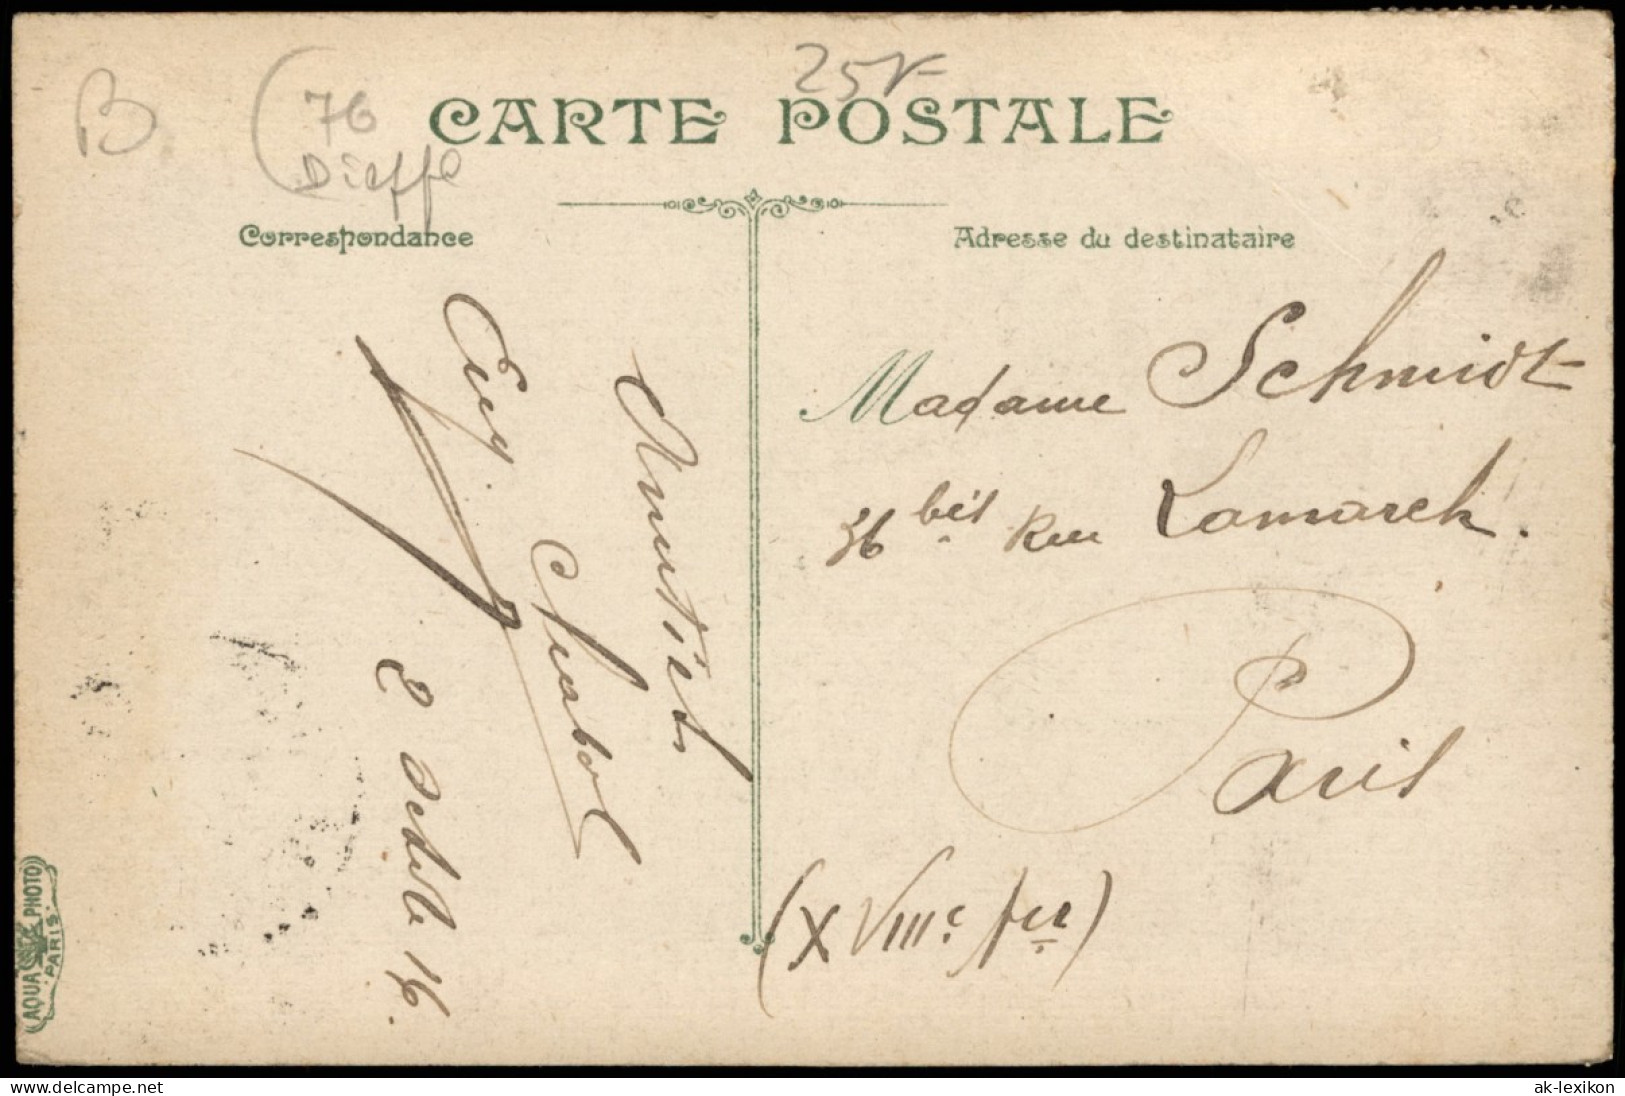 B
76
Dieppe
25F
CARTE POSTALE
Correspondance
Adresse du destinataire
Amitiés
Chabol
2 octobre 16.
Madame Schmidt
36 bis Rue Lamarck.
Paris
(XVIIIe
AQUA PHOTO
PARIS
www.delcampe.net
ak-lexikon